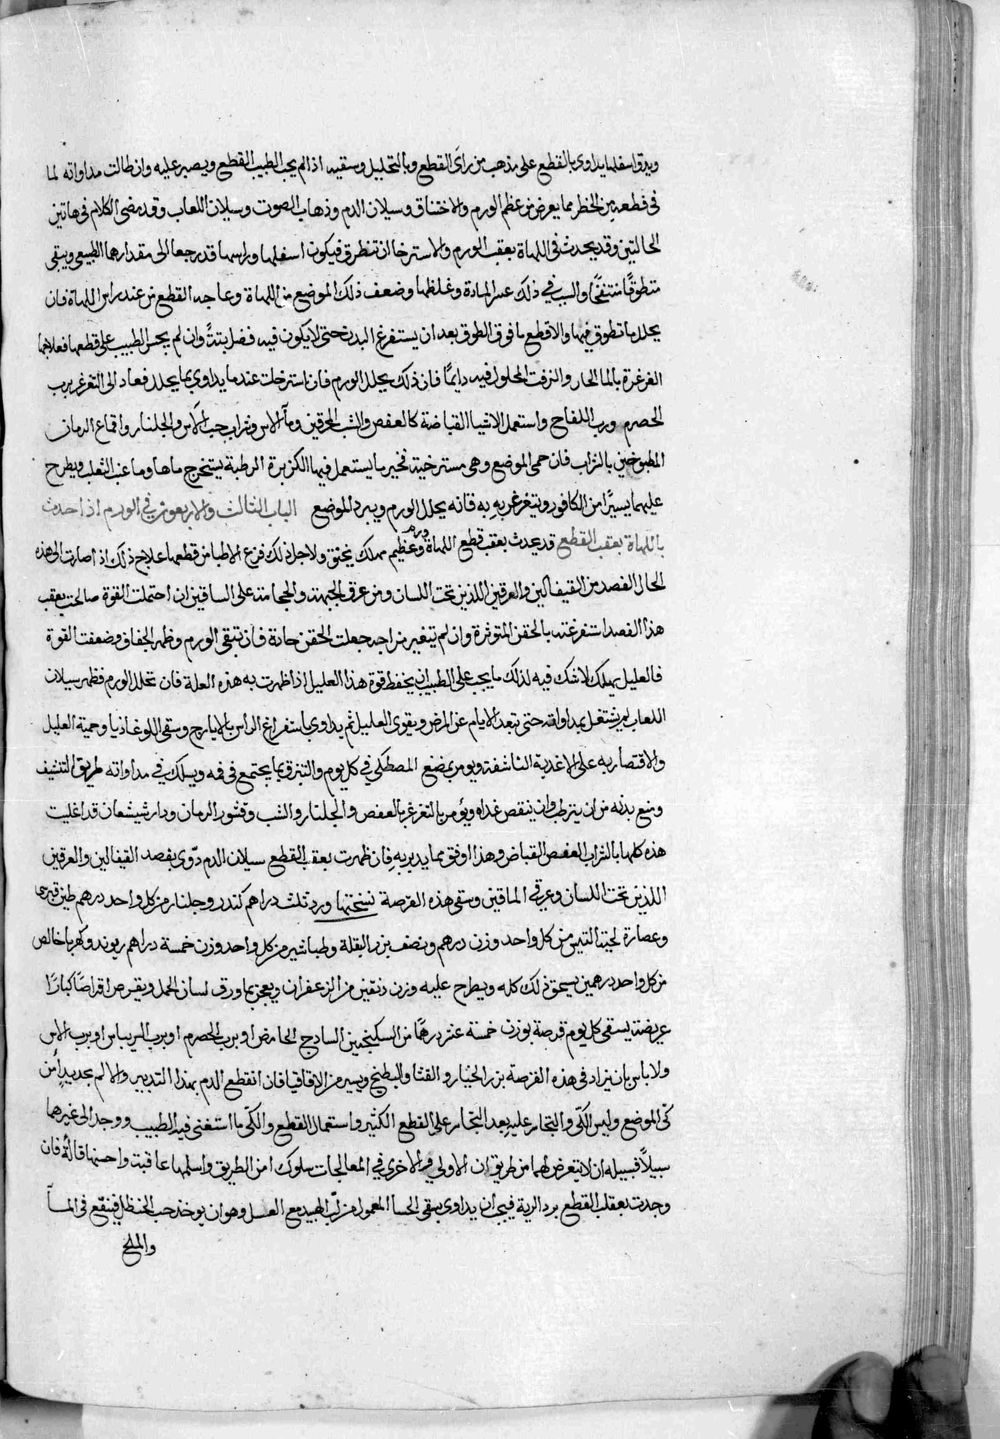 ويدق اسفلها يداوى بالقطع على مذهب من راى القطع وبالتحليل وسقيه اذا لم يجب الطبيب القطع ويصبر عليه وان طالت مداواته لما
فى قطعه من الخطر مما يعرض من عظم الورم والاختناق وسيلان الدم وذهاب الصوت وسيلان اللعاب وقد مضى الكلام فى هاتين
الحالتين وقد يحدث فى اللهاة بعقب الورم والاسترخا ان تتطرق فيكون اسفلها وراسها قد رجعا الى مقدارهما الطبيعى ويبقى
متطوقًا منتفخًا والسبب فى ذلك عسر المادة وغلظها وضعف ذلك الموضع من اللهاة وعلاجه القطع من عند راس اللهاة فان
يحلل ما تطوق فيها والا قطع ما فوق الطوق بعد ان يستفرغ البدن حتى لا يكون فيه فضل بتةً وان لم يجسر الطبيب على قطعها فعلاجها
الغرغرة بالما الحار والزفت المحلول فيه دايمًا فان ذلك يحلل الورم فان استرخت عند ما يداوى بما يحلل فعاد الى التغرغر برب
الحصرم ورب اللفاح واستعمل الاشيا القباضة كالعفص والشب المحرقين ومآ الاس وشراب حب الاس والجلنار واقماع الرمان
المطبوخين بالشراب فان حمى الموضع وهى مسترخية فخير ما يستعمل فيها الكزبرة الرطبة يستخرج ماها وما عنب الثعلب ويطرح
عليهما يسيرًا من الكافور ويتغرغر به فانه يحلل الورم ويبرد الموضع الباب الثالث والاربعون فى الورم اذا حدث
باللهاة بعقب القطع قد يحدث بعقب قطع اللهاة ورم عظيم مهلك يخنق ولاجل ذلك فزع الاطبا من قطعها علاج ذلك اذا صارت الى هذه
الحال الفصد من القيفالين والعرقين اللذين تحت اللسان ومن عرق الجبهة والحجامة على الساقين ان احتملت القوة صالحت بعقب
هذا الفصد استفرغته بالحقن المتوثرة وان لم تتغير مزاجه جعلت الحقن حادة فان تبقى الورم وظهر الجفاف وضعفت القوة
فالعليل يهلك لا شك فيه لذلك ما يجب على الطبيب ان يحفظ قوة هذا العليل اذا ظهرت به هذه العلة فان تحلل الورم فظهر سيلان
اللعاب لم يشتغل بمداواته حتى تبعد الايام عن المرض ويقوى العليل ثم يداوى باستفراغ الراس بالايارج وسقى اللوغاذيا وحمية العليل
والاقتصار به على الاغدية الناشفة ويومر بمضغ المصطكى فى كل يوم والتبزق بما يجتمع فى فه ويسلك فى مداواته طريق التنشيف
ومنع بدنه من ان يترطب وان ينقص غداه ويؤمر بالتغرغر بالعفص والجلنار والشب وقشور الرمان ودارشيشعان قد اغليت
هذه كلها بالشراب العفص القباض وهذا اوفق مما يدبر به فان ظهرت بعقب القطع سيلان الدم دوّى بفصد القيفالين والعرقين
اللذين تحت اللسان وعرقى الماقين وسقى هذه القرصة نسختها ورد ثلث دراهم كندر وجلنار من كل واحد درهم طين قبرسى
وعصارة لحية التيس من كل واحد وزن درهم ونصف بزر البقلة وطباشير من كل واحد وزن خمسة دراهم ريوند وكهربا خالص
من كل واحد درهمين يسحق ذلك كله ويطرح عليه وزن دنقين من الزعفران ويعجن بما ورق لسان الحمل ويقرص اقراصًا كبارًا
عريضة يسقى كل يوم قرصة بوزن خمسة عشر درهمًا من السكنجبين السادج الحامض او برب الحصرم او برب الريباس او برب الاس
ولا باس بان يزاد فى هذه القرصة بزر الخيار والقثا والبطيخ ويسير من الاقاقيا فان انقطع الدم بهذا التدبير والا لم يجد بدًا من
كى الموضع وليس الكى والتجار عليه بعد التجار على القطع الكثير واستعمال القطع والكى ما استغنى فيه الطبيب ووجد الى غيرهما
سبيلًا فسبيله ان لا يتعرض لهما من طريق ان الاولى والاخرى فى المعالجات سلوك امن الطريق واسلمها عاقبة واحسنها قالة فان
وجدت بعقب القطع برد الرية فيجب ان يداوى بسقى الحسا المعمول من لب الهبيد مع العسل وهو ان يوخذ حب الحنظل فينقع فى المآ
والملح